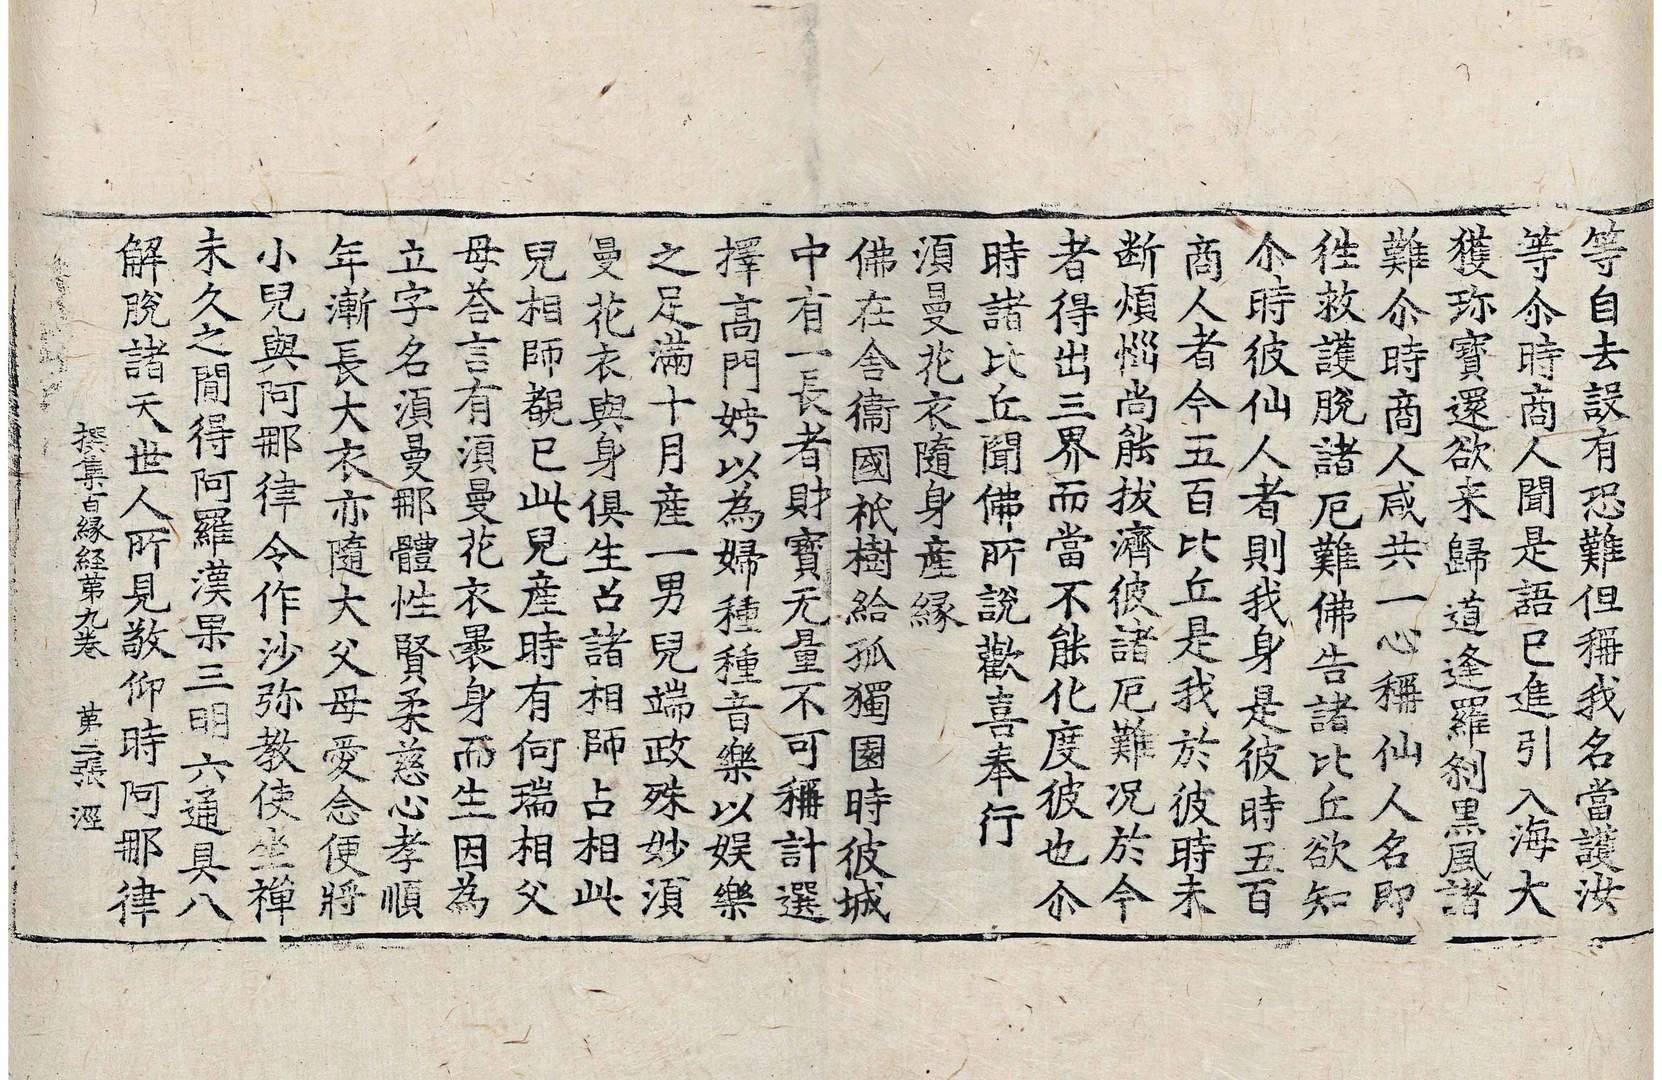 等自去設有恐難但稱我名當護汝
等尒時商人聞是語已進引入海大
獲珎寶還欲来歸道逢羅刹黒風諸
難尒時商人咸共一心稱仙人名即
徃救護脫諸厄難佛告諸比丘欲知
尒時彼仙人者則我身是彼時五百
商人者今五百比丘是我於彼時未
断煩惱尚能拔濟彼諸厄難况於今
者得出三界而當不能化度彼也尒
時諸比丘聞佛所說歡喜奉行
湏曼花衣隨身產緣
佛在舍衞國祇樹給孤獨園時彼城
中有一長者財寶无量不可稱計選
擇高門娉以為婦種種音樂以娱樂
之足滿十月産一男兒端政殊妙湏
曼花衣與身俱生召諸相師占相此
兒相師覩已此兒産時有何瑞相父
母荅言有湏曼花衣裹身而生因為
立字名湏曼那體性賢柔慈心孝順
年漸長大衣亦隨大父母愛念便將
小兒與阿那律令作沙弥教使坐禪
未久之間得阿羅漢果三明六通具八
解脫諸天世人所見敬仰時阿那律
撰集百緣経苐九卷 苐二張 涇